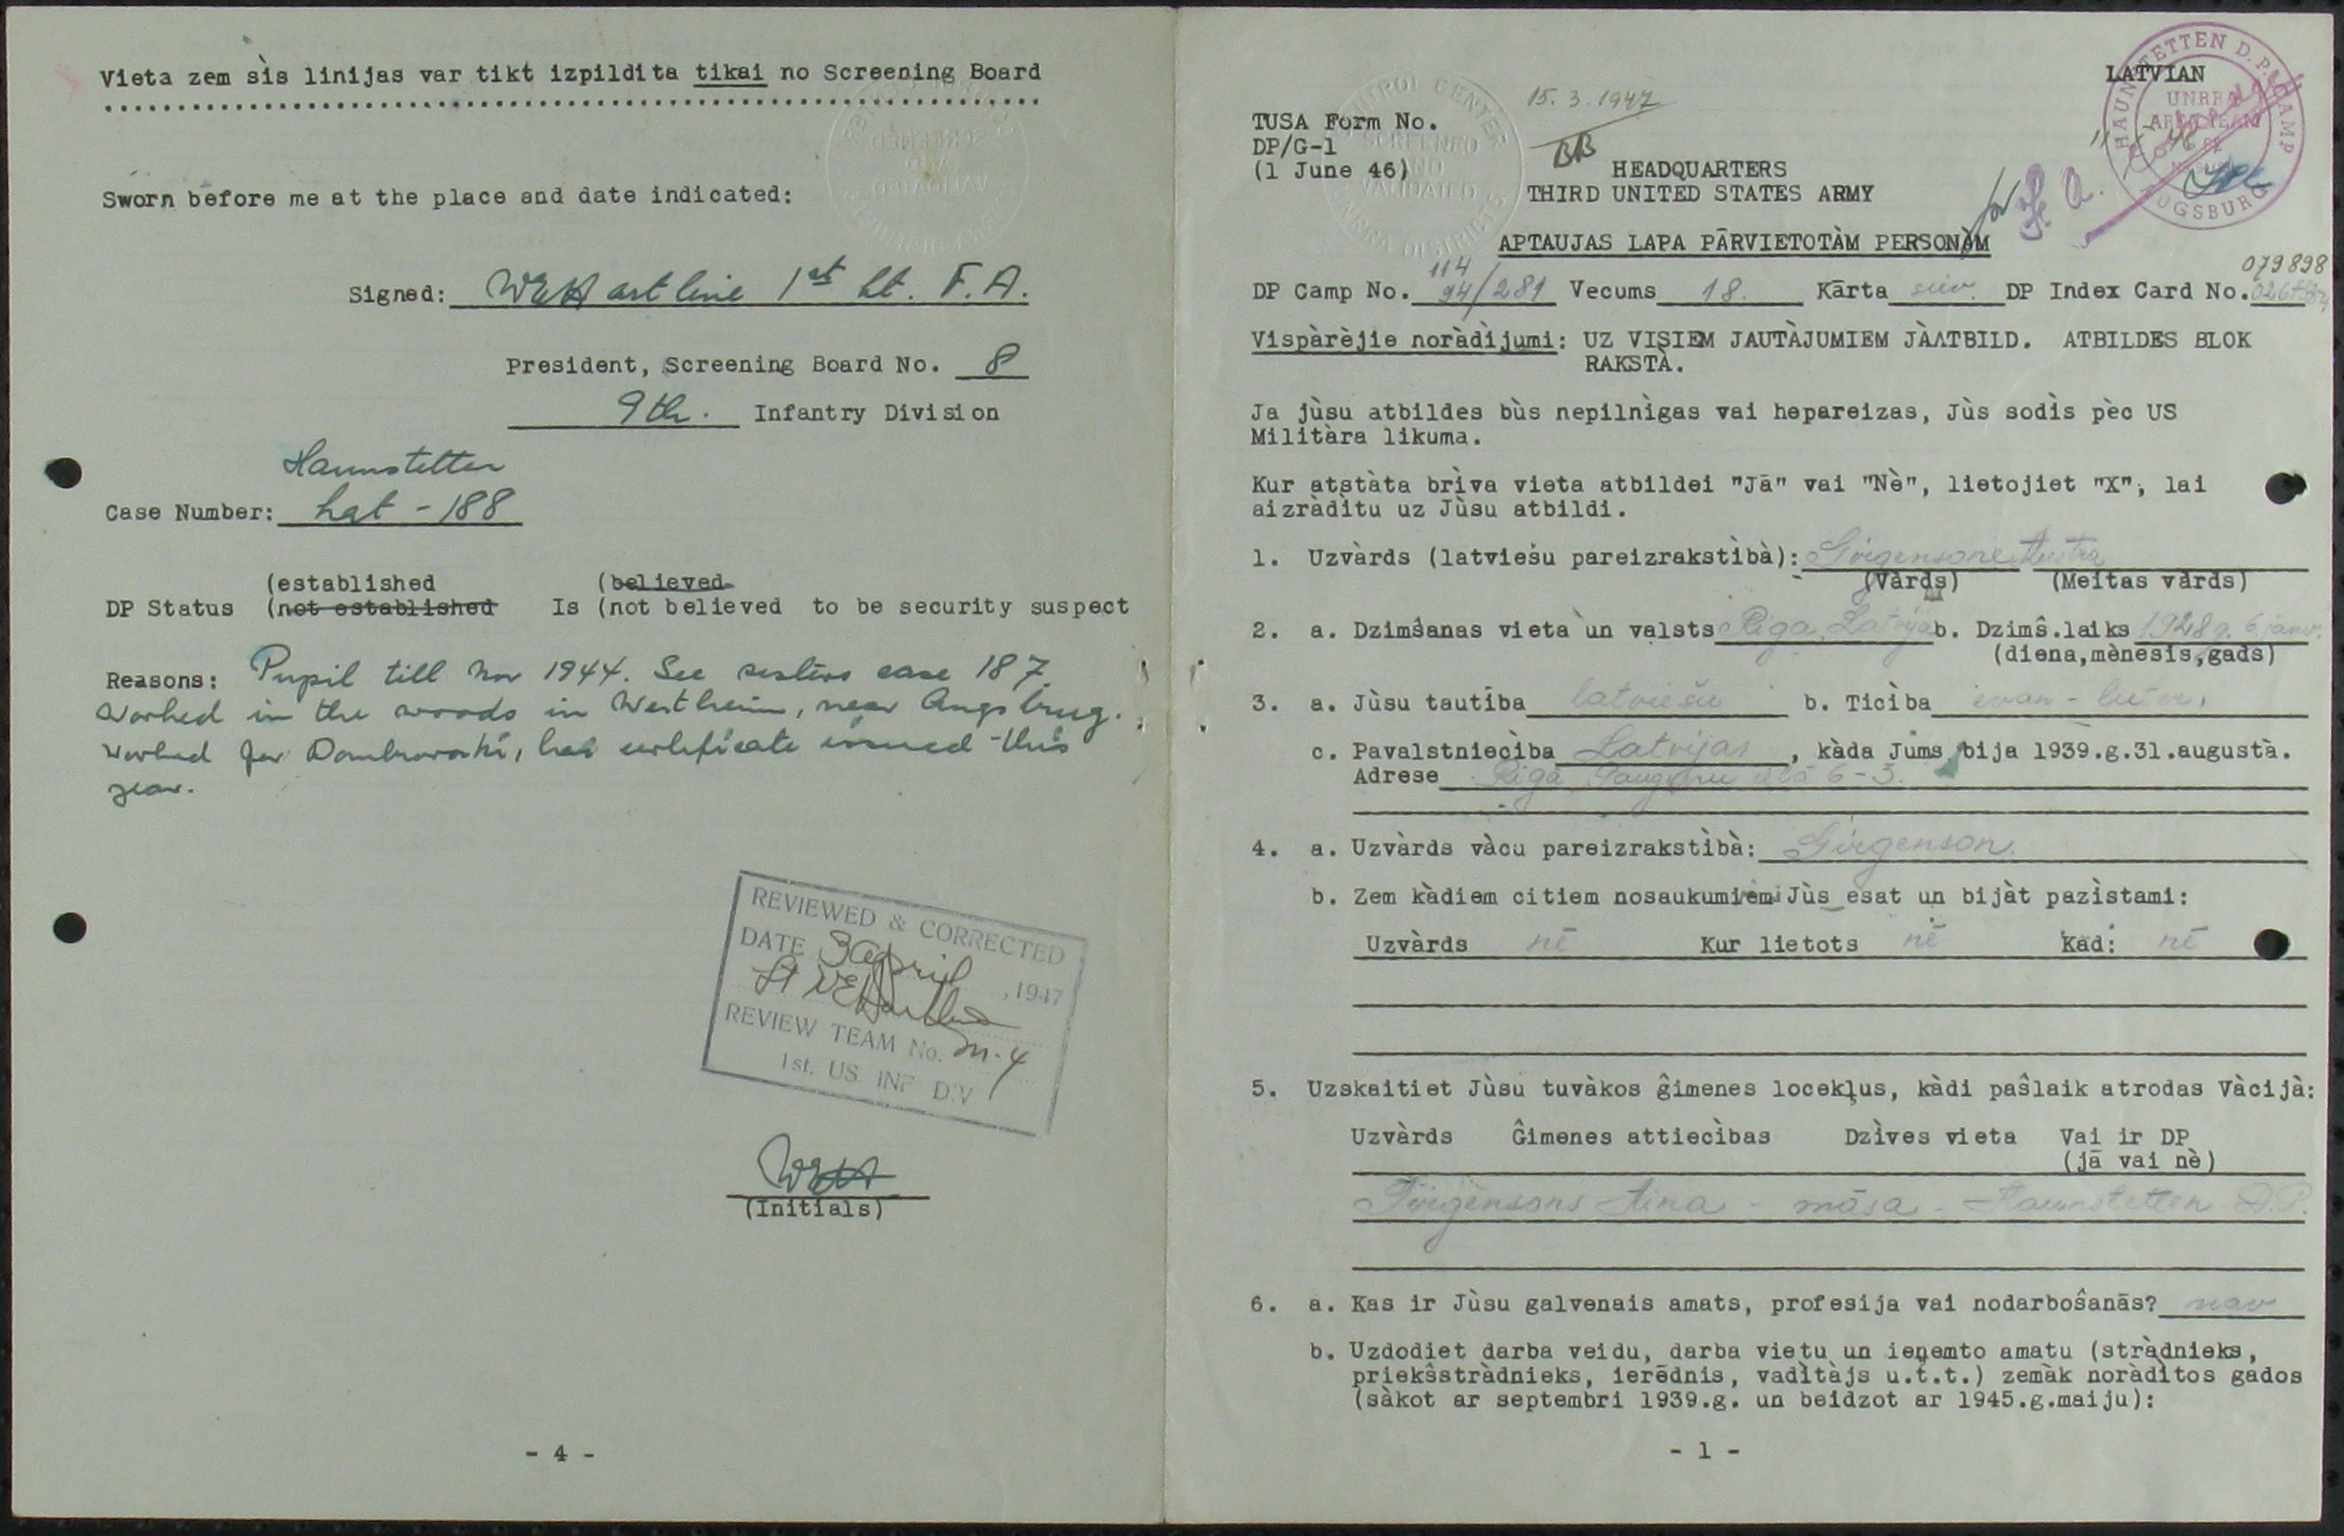 Vieta zem sìs linijas var tikt izpildita tikai no Screening Board
Sworn before me at the place and date indicated:
Signed: WEHartline 1st Lt. F.A.
President, Screening Board No. 8
9th. Infantry Division
Haunstetten
Case Number: Lat - 188
(established (believed
DP Status (not established Is (not believed to be security suspect
Reasons: Pupil till Nov 1944. See sisters case 187.
Worked in the woods in Westheim, near Augsburg.
Worked for Dombrowski, has certificate issued this
year.
REVIEWED & CORRECTED
DATE 3 April, 1947
Lt WEHartline
REVIEW TEAM No. M-4
1st. US INF DIV
WEH
(Initials)
- 4 -
LATVIAN
HAUNSTETTEN D.P. CAMP
UNRRA
AREA TEAM
AUGSBURG
CONTROL CENTER
SCREENED
AND
VALIDATED
UNRRA DISTRICT 5
15. 3. 1947
BB
TUSA Form No.
DP/G-1
(1 June 46)
HEADQUARTERS
THIRD UNITED STATES ARMY
APTAUJAS LAPA PĀRVIETOTÀM PERSONÀM
079898
114
DP Camp No. 94/281 Vecums 18. Kārta siev. DP Index Card No.
Vispàrèjie noràdìjumi: UZ VISIEM JAUTÀJUMIEM JÀATBILD. ATBILDES BLOK
RAKSTÀ.
Ja jùsu atbildes bùs nepilnìgas vai hepareizas, Jùs sodìs pèc US
Militàra likuma.
Kur atstàta brìva vieta atbildei "Jā" vai "Nè", lietojiet "X", lai
aizràdìtu uz Jùsu atbildi.
1. Uzvàrds (latviešu pareizrakstìbà): Girgensone Austra
(Vàrds) (Meitas vàrds)
2. a. Dzimšanas vieta un valsts Riga, Latvija b. Dzimŝ.laiks 1928 g. 6 janv.
(diena,mènesis,gads)
3. a. Jùsu tautība latviešu b. Ticìba evan - luter.
c. Pavalstniecìba Latvijas, kàda Jums bija 1939.g.31.augustà.
Adrese Rīgā, ielā 6-3.
4. a. Uzvàrds vàcu pareizrakstìbà: Girgenson.
b. Zem kàdiem citiem nosaukumiem Jùs esat un bijàt pazìstami:
Uzvàrds nē Kur lietots nē Kad: nē
5. Uzskaitiet Jùsu tuvàkos ĝimenes locekļus, kàdi paŝlaik atrodas Vàcijà:
Uzvàrds Ĝimenes attiecìbas Dzìves vieta Vai ir DP
(jā vai nè)
Girgensons Aina - māsa - Haunstetten D.P.
6. a. Kas ir Jùsu galvenais amats, profesija vai nodarboŝanās? nav
b. Uzdodiet darba veidu, darba vietu un ieņemto amatu (stràdnieks,
priekŝstràdnieks, ierēdnis, vadìtàjs u.t.t.) zemàk noràdìtos gados
(sàkot ar septembri 1939.g. un beidzot ar 1945.g.maiju):
- 1 -